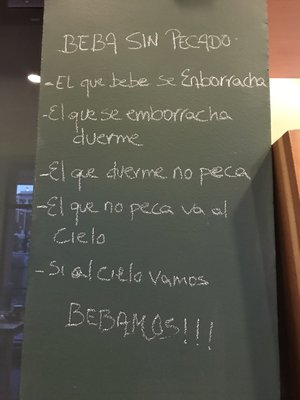 BEBA SIN PECADO.
- EL que bebe se Enborracha
- El que se emborracha
duerme
- El que duerme no peca
- El que no peca va al
Cielo
- Si al cielo vamos
BEBAMOS!!!